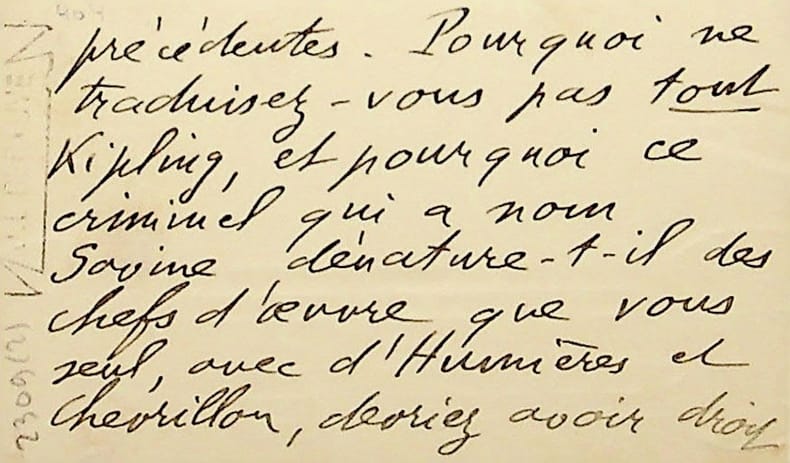 précédentes. Pourquoi ne
traduisez-vous pas tout
Kipling, et pourquoi ce
criminel qui a nom
Savine dénature-t-il des
chefs d'œuvre que vous
seul, avec d'Humières et
Chevrillon, devriez avoir droit
2309(2)